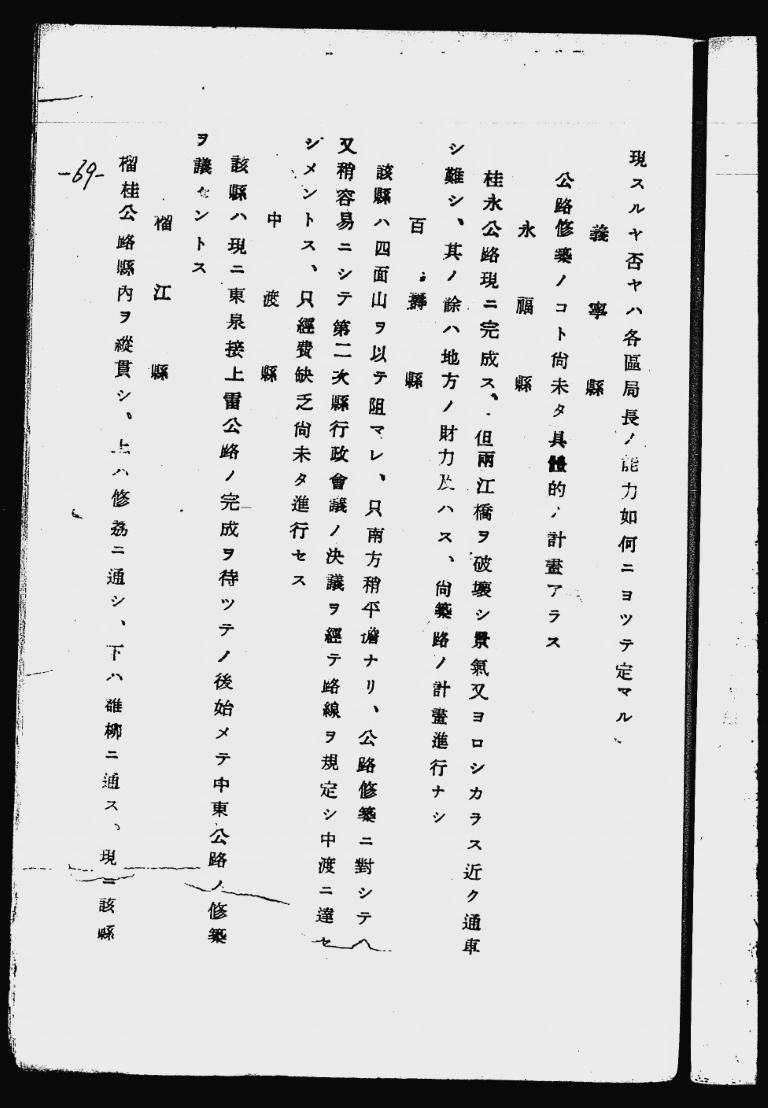 現スルヤ否ヤハ各區局長ノ能力如何ニヨツテ定マル
義寧縣
公路修築ノコト尙未タ具體的ノ計畫アラス
永福縣
桂永公路現ニ完成ス、但兩江橋ヲ破壞シ景氣又ヨロシカラス近ク通車
シ難シ、其ノ餘ハ地方ノ財力及ハス、尙築路ノ計畫進行ナシ
百壽縣
該縣ハ四面山ヲ以テ阻マレ、只南方稍平ナリ、公路修築ニ對シテ
又稍容易ニシテ第二次縣行政會議ノ決議ヲ經テ路線ヲ規定シ中渡ニ達セ
シメントス、只經費缺乏尙未タ進行セス
中渡縣
該縣ハ現ニ東泉接上雷公路ノ完成ヲ待ツテノ後始メテ中東公路ノ修築
ヲ議セントス
榴江縣
榴桂公路縣內ヲ縱貫シ、上ハ修荔ニ通シ、下ハ雒柳ニ通ス、現ニ該縣
-69-